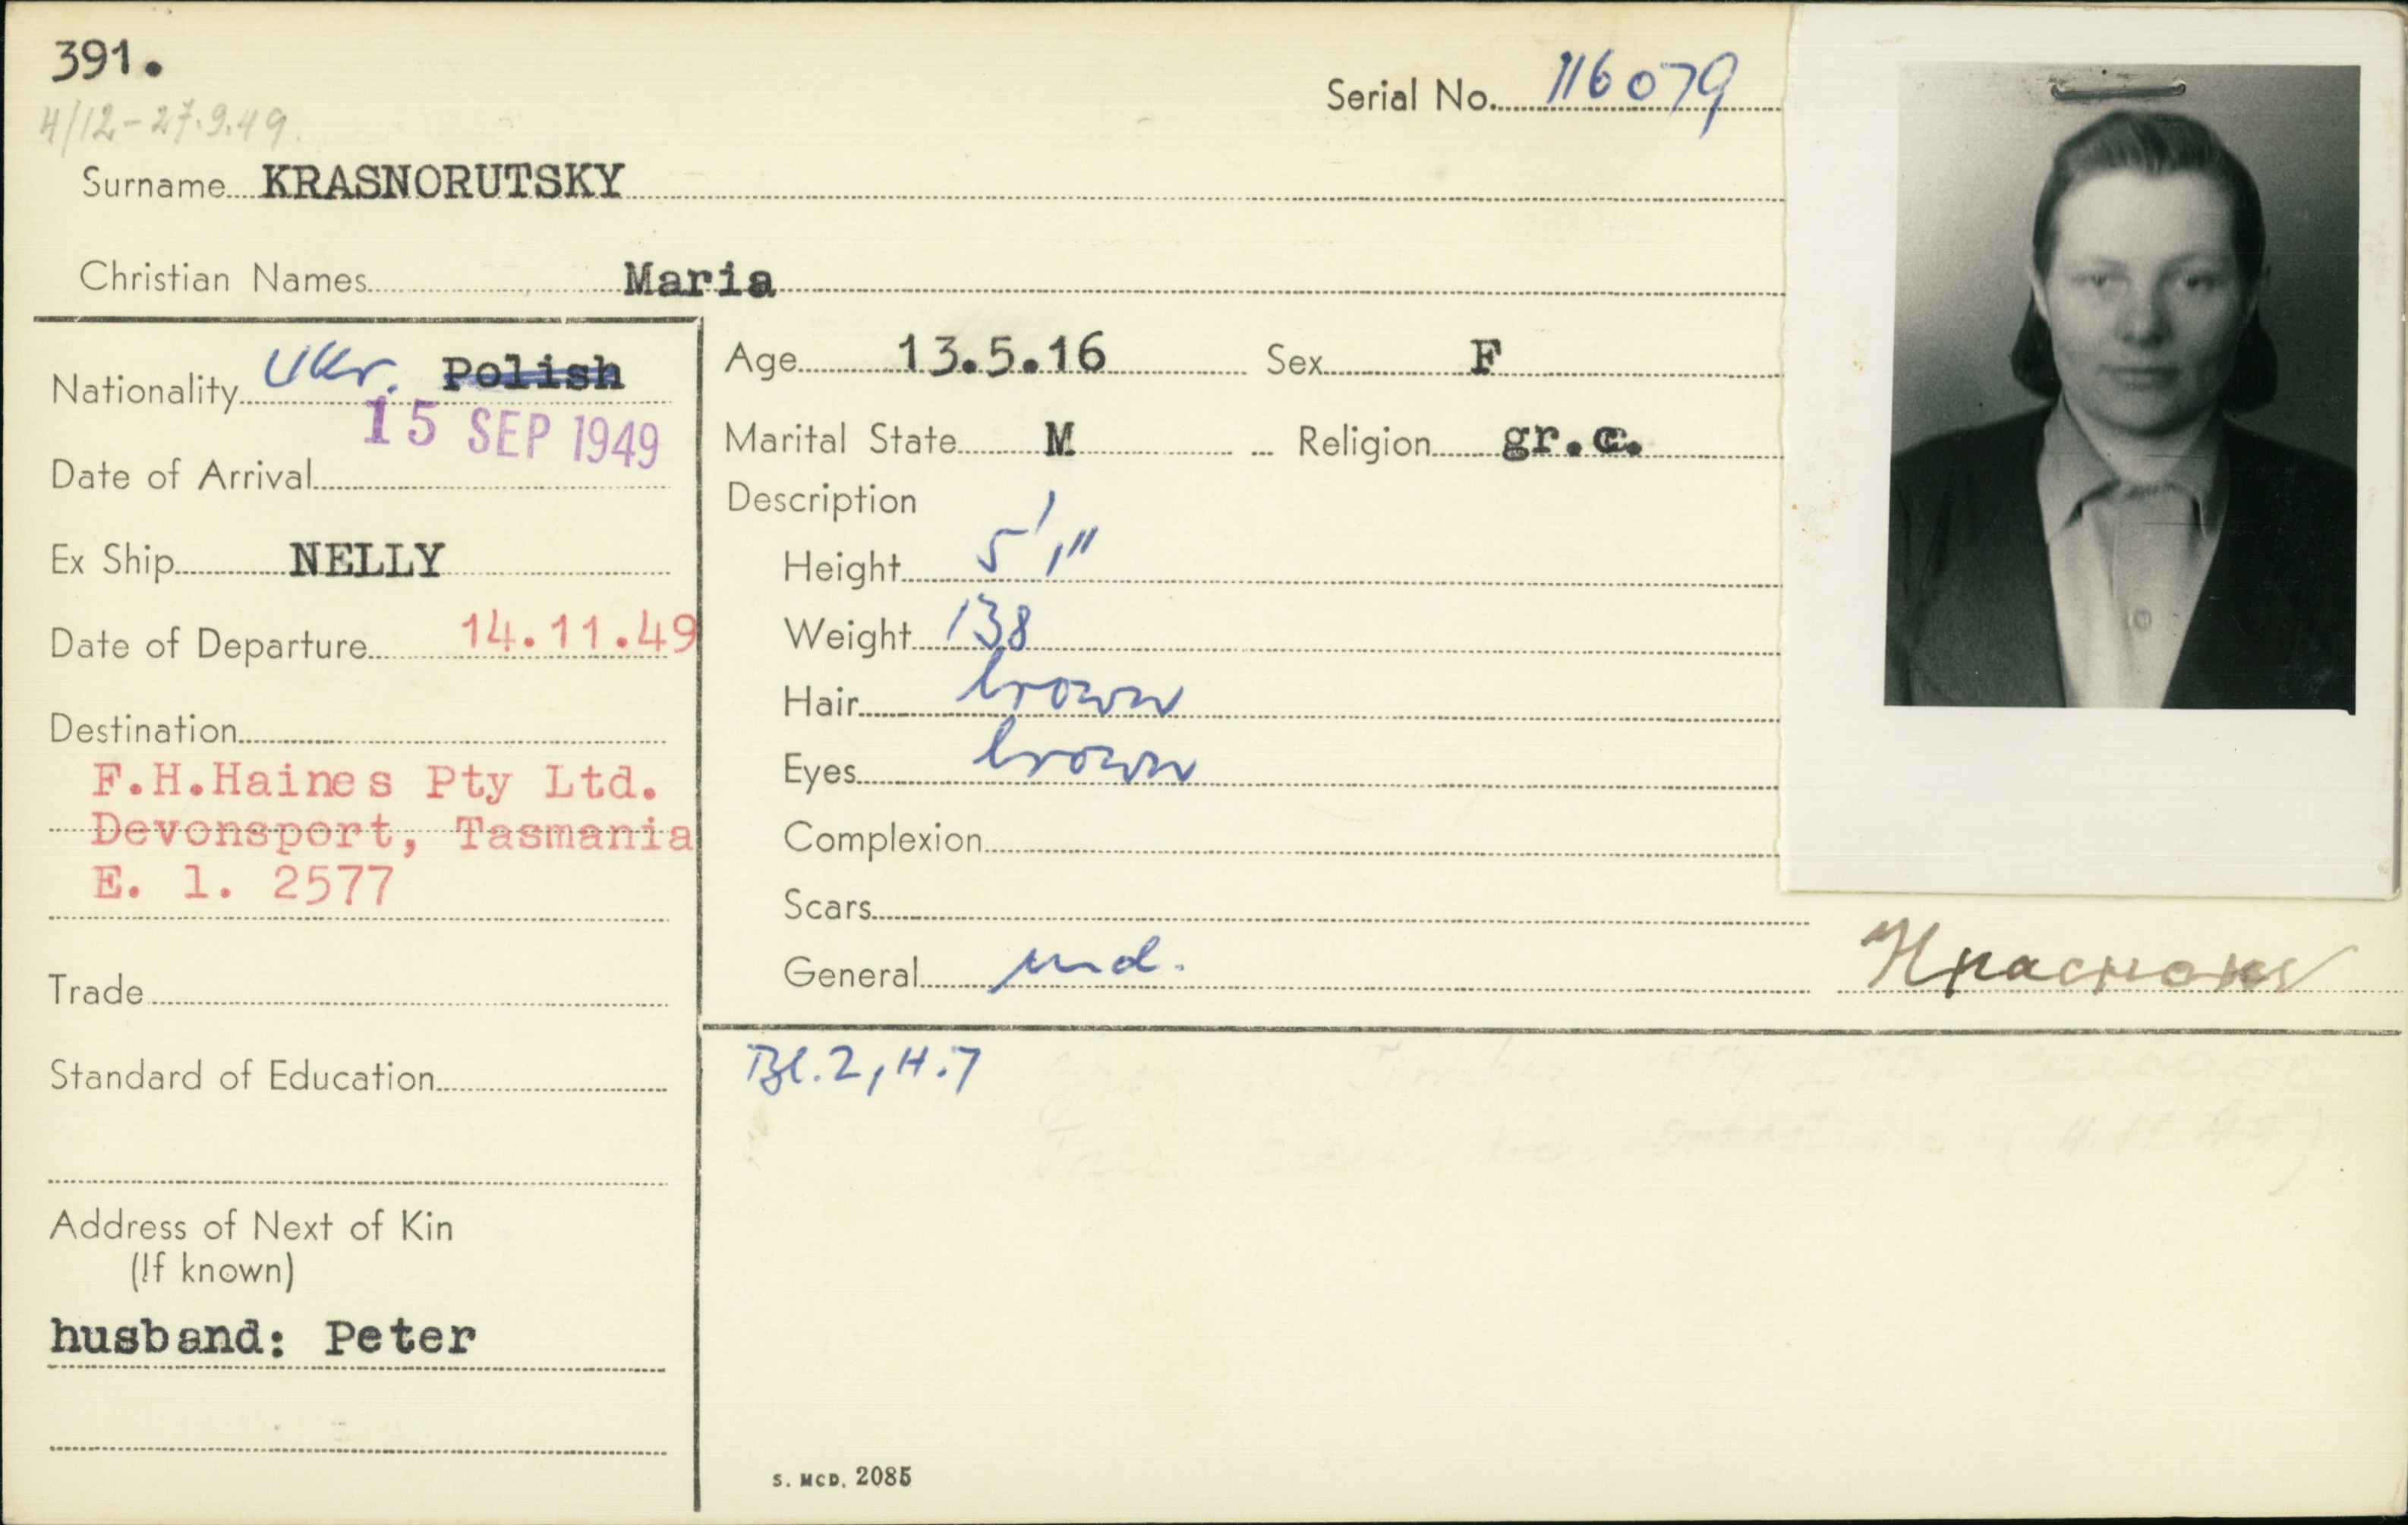 391.
4/12-27.9.49.
Serial No. 116079
Surname KRASNORUTSKY
Christian Names Maria
Nationality Ukr. Polish
15 SEP 1949
Date of Arrival
Ex Ship NELLY
Date of Departure 14.11.49
Destination
F.H.Haines Pty Ltd.
Devonsport, Tasmania
E. 1. 2577
Trade
Standard of Education
Address of Next of Kin
(If known)
husband: Peter
Age 13.5.16 Sex F
Marital State M Religion gr.c.
Description
Height 5' 1"
Weight 138
Hair brown
Eyes brown
Complexion
Scars
General med.
Bl.2, H.7
S. MCD. 2085